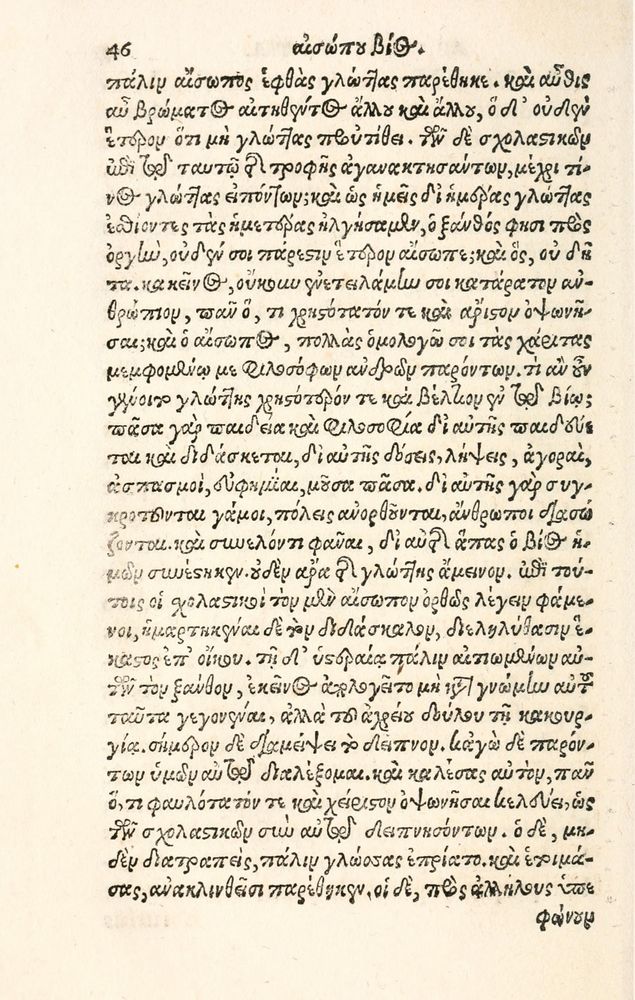 46 αἰσώπου βίος.
πάλιν αἴσωπος ἑφθὰς γλώττας παρέθηκε. καὶ αὖθις
αὖ βρώματος αἰτηθέντος ἄλλου καὶ ἄλλου, ὁ δ' οὐδὲν
ἕτερον ὅτι μὴ γλώττας προυτίθει. τῶν δὲ σχολαστικῶν
ἐπὶ τῷ ταυτῷ τῆς τροφῆς ἀγανακτησάντων, μέχρι τί-
νος γλώττας εἰπόντων; καὶ ὡς ἡμεῖς δι' ἡμέρας γλώττας
ἐσθίοντες τὰς ἡμετέρας ἠλγήσαμεν, ὁ ξάνθός φησι πρὸς
ὀργὴν, οὐδέν σοι πάρεστιν ἕτερον αἴσωπε; καὶ ὃς, οὐ δῆ-
τα. κἀκεῖνος, οὔκουν ἐνετειλάμην σοι κατάρατον ἀν-
θρώπιον, πᾶν ὅ, τι χρηστότατόν τε καὶ ἄριστον ὀψωνῆ-
σαι; καὶ ὁ αἴσωπος, πολλὰς ὁμολογῶ σοι τὰς χάριτας
μεμφομένῳ με φιλοσόφων ἀνδρῶν παρόντων. τί ἂν οὖν
γένοιτο γλώττης χρηστότερόν τε καὶ βέλτιον ἐν τῷ βίῳ;
πᾶσα γὰρ παιδεία καὶ φιλοσοφία δι' αὐτῆς παιδεύε
ται καὶ διδάσκεται, δι' αὐτῆς δόσεις, λήψεις, ἀγοραὶ,
ἀσπασμοὶ, εὐφημίαι, μοῦσα πᾶσα. δι' αὐτῆς γὰρ συγ-
κροτοῦνται γάμοι, πόλεις ἀνορθοῦνται, ἄνθρωποι διασώ
ζονται. καὶ συνελόντι φᾶναι, δι' αὐτῆς ἅπας ὁ βίος ἡ-
μῶν συνέστηκεν. οὐδὲν ἄρα τῆς γλώττης ἄμεινον. ἐπὶ τού-
τοις οἱ σχολαστικοὶ τὸν μὲν αἴσωπον ὀρθῶς λέγειν φάμε-
νοι, ἡμαρτηκέναι δὲ τὸν διδάσκαλον, διεληλύθασιν ἕ-
καστος ἐπ' οἴκου. τῇ δ' ὑστεραίᾳ πάλιν αἰτιωμένων αὐ-
τῶν τὸν ξάνθον, ἐκεῖνος ἀπελογεῖτο μὴ κατὰ γνώμην αὐτοῦ
ταῦτα γεγονέναι, ἀλλὰ τοῦ ἀχρείου δούλου τῇ κακουρ-
γίᾳ. σήμερον δὲ διαμείψει τὸ δεῖπνον. κἀγὼ δὲ παρόν-
των ὑμῶν αὐτῷ διαλέξομαι. καὶ καλέσας αὐτὸν, πᾶν
ὅ, τι φαυλότατόν τε καὶ χείριστον ὀψωνῆσαι κελεύει, ὡς
τῶν σχολαστικῶν σὺν αὐτῷ δειπνησόντων. ὁ δὲ, μη-
δὲν διατραπεὶς, πάλιν γλώσσας ἐπρίατο. καὶ ἑτοιμά-
σας, ἀνακλινθεῖσι παρέθηκεν. οἱ δὲ, πρὸς ἀλλήλους ὑπε
φώνουν